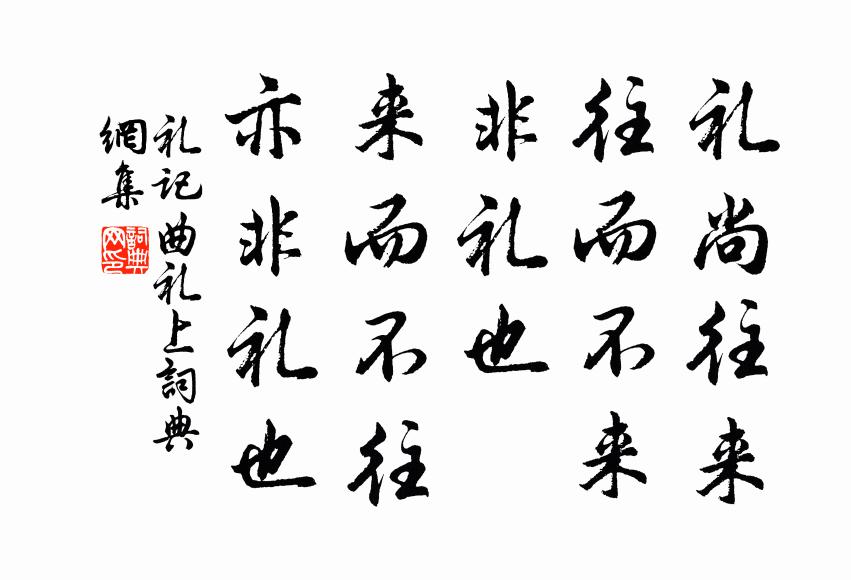 礼尚往来
往而不来
非礼也
来而不往
亦非礼也
礼记曲礼上詞典
網集
詞典
网印